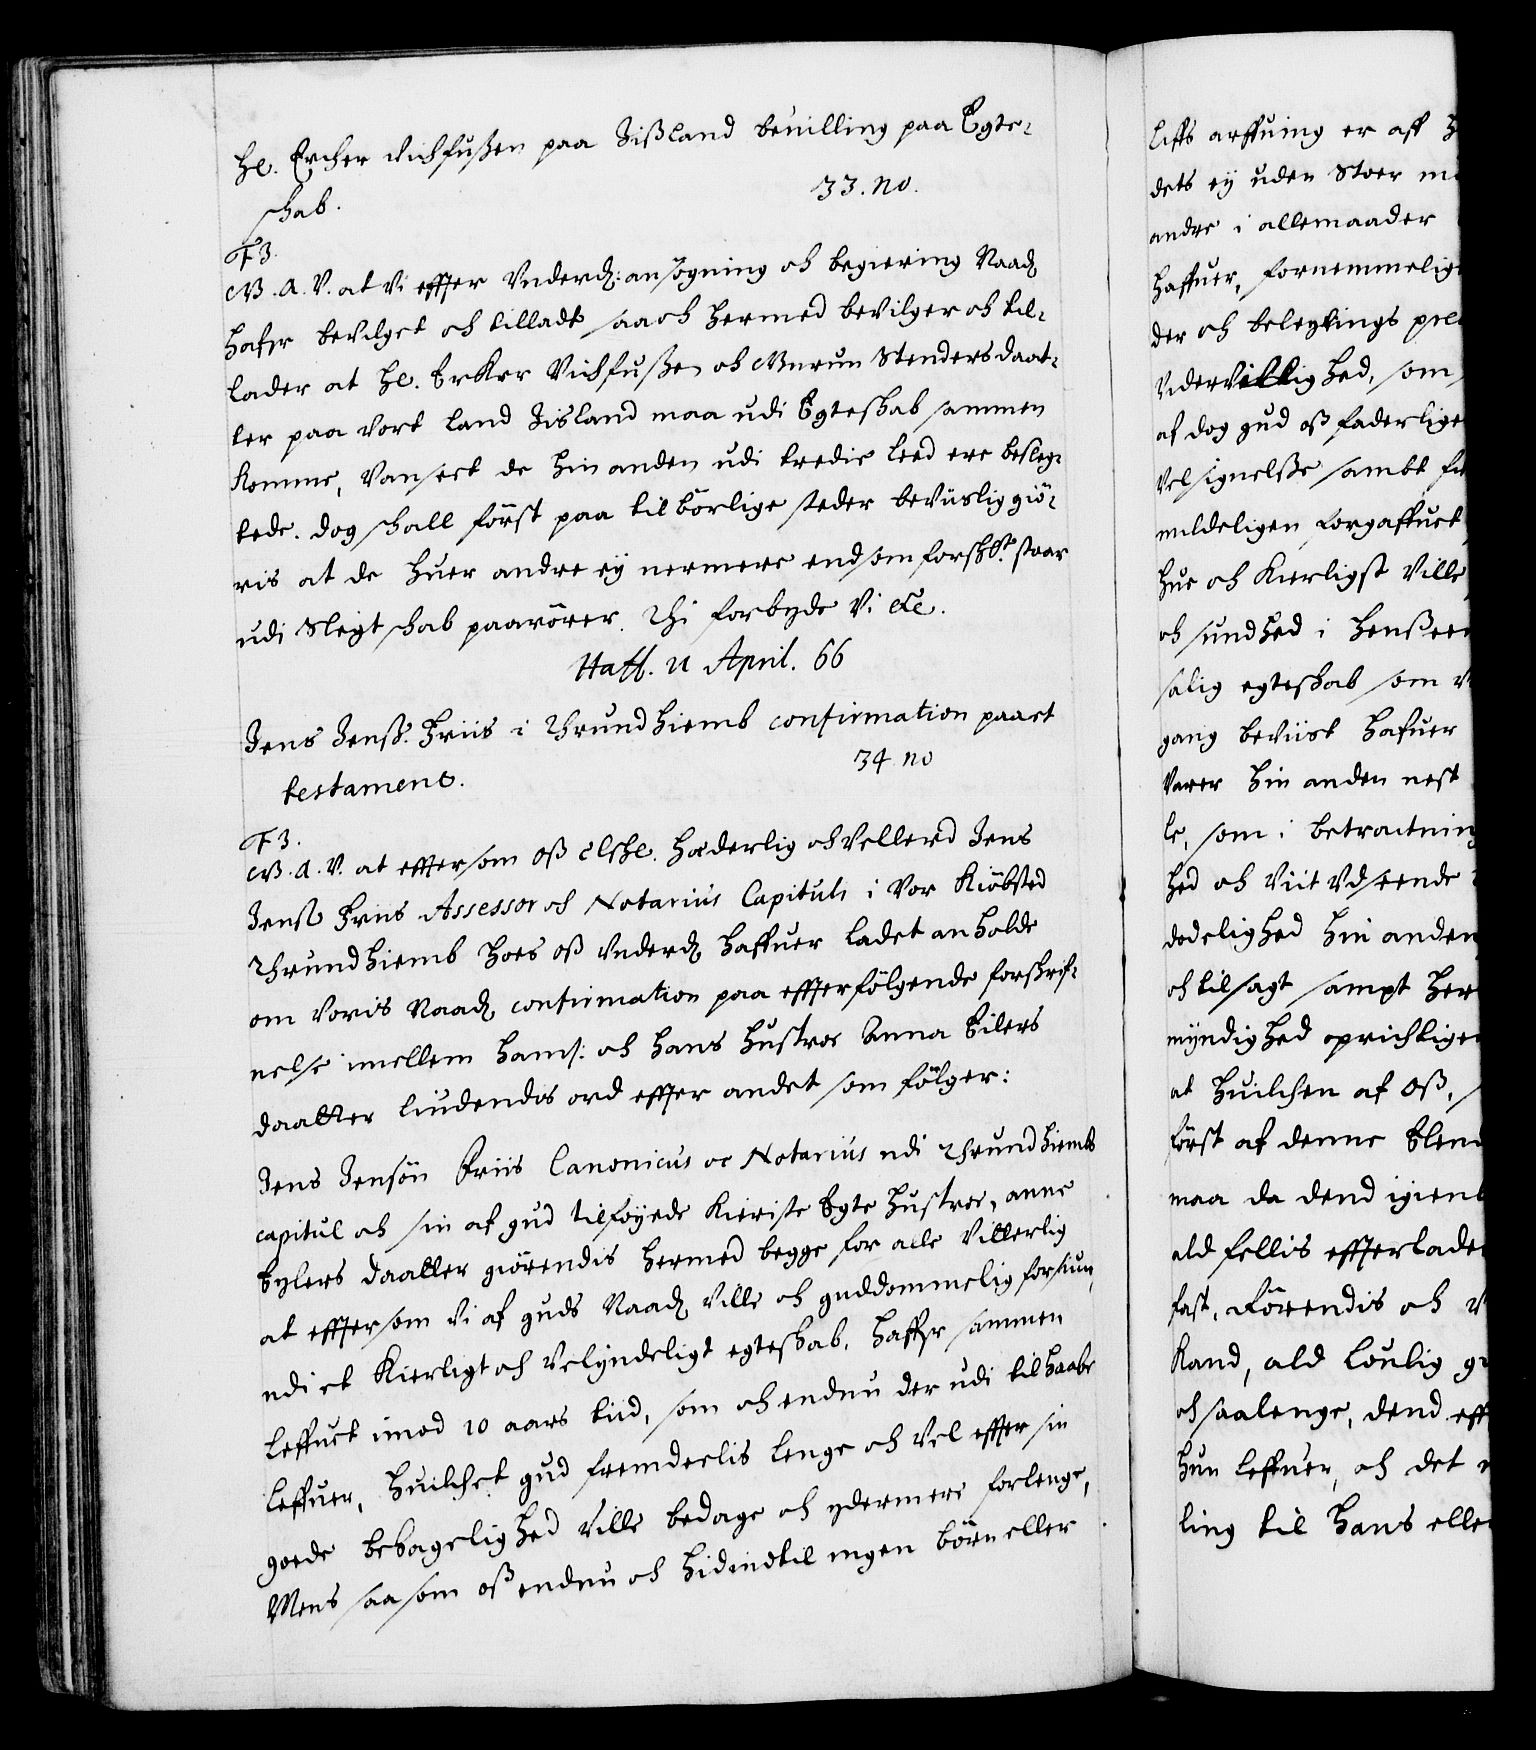 He. Ercher Vichfußen paa Jißland bevilling paa Egte-
skab.
33. no.
F3.
G. A. V. at Vi effter Underd: ansögning och begiering Naad
hafr bevilget och tilladt saa och hermed bevilger och til-
lader at He. Erker Vichfußen och Gurun Stenders daat-
ter paa vort land Jisland maa udi Egteskab sammen
komme, Uanseet de hin anden udi tredie leed ere besleg-
tede. dog skall först paa tilbörlige steder bevüslig giö-
ris at de huer andre ey nermere end som forskt. staar
udi Slegtskab paarörer. Thi forbyde Vi etc.
Haff. 21 April. 66
Jens Jenß. Friis i Thrundhiemb confirmation paa et
testament.
34 no
F3.
G. A. V. at effter som oß elskl. Hæderlig och Vellerd Jens
Jenß Friis Assessor och Notarius Capituli i Vor Kiöbsted
Thrundhiemb hoes oß Underd haffuer ladet anholde
om Voris Naad confirmation paa effterfölgende forskrif-
nelse imellem ham: och hans hustroe Anna Eilers
daatter liudendis ord effter andet som fölger:
Jens Jensön Friis Canonicus oc Notarius udi Thrundhiembs
capitul och sin af gud tilföyede kieriste Egte hustroe, anne
Eylers daatter giörendis hermed begge for alle Vitterlig
at effter som Vi af guds Naad Ville och guddommelig forsiun,
udi et kierligt och Velyndeligt egteskab, haffr sammen
leffuet imod 10 aars tiid, som och endnu der udi tilhaabe
leffuer, huilchet gud fremdeelis lenge och Vel effter sin
goede behagelighed Ville bedage och ydermere forlenge,
Mens saasom oß endnu och hidindtil ingen börn eller
liffs arffuing er aff
dets ey uden Stoer
andre i allemaader
haffuer, fornemmelig
der och beleylings
Vdervillighed, som
af dog gud oß faderlige
Velsignelsse sambt
mildeligen forgaffuet
hue och kierligst Ville
och sundhed i
salig egteskab som
gang beviist hafuer
Varer hin anden nest
le, som i betractning
hed och Viit Udseende
dodelighed hin anden
och tilsagt sampt her
myndighed oprichtige
at huilchen af oß,
först af denne Elend
maa da dend igienl
ald fellis effterlade
fast, Rörendis och
Rand, ald loulig
och saalenge, dend eff
hun leffuer, och det
ling til hans elle